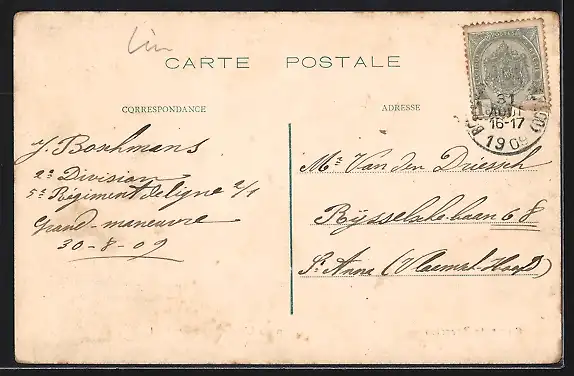 Lin
CARTE POSTALE
CORRESPONDANCE
ADRESSE
31
AOUT
16-17
1909
J. Boxhmans
2e Division
5e Régiment de ligne 2/1
Grand-maneuvre
30-8-09
Mr Van den Driessch
Rijsselschebaan 68
St Anna (Vlaemsh-Hoofd)